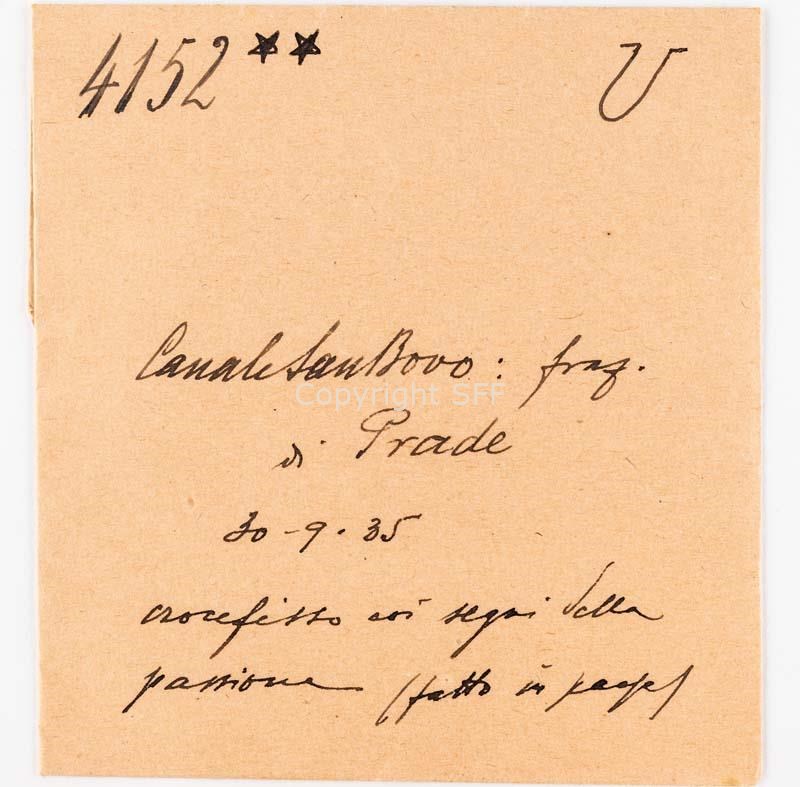 4152 ** U
Canale San Bovo: fraz.
Copyright SFF
di Prade
30-9-35
crocefisso coi segni della
passione (fatto in paese)